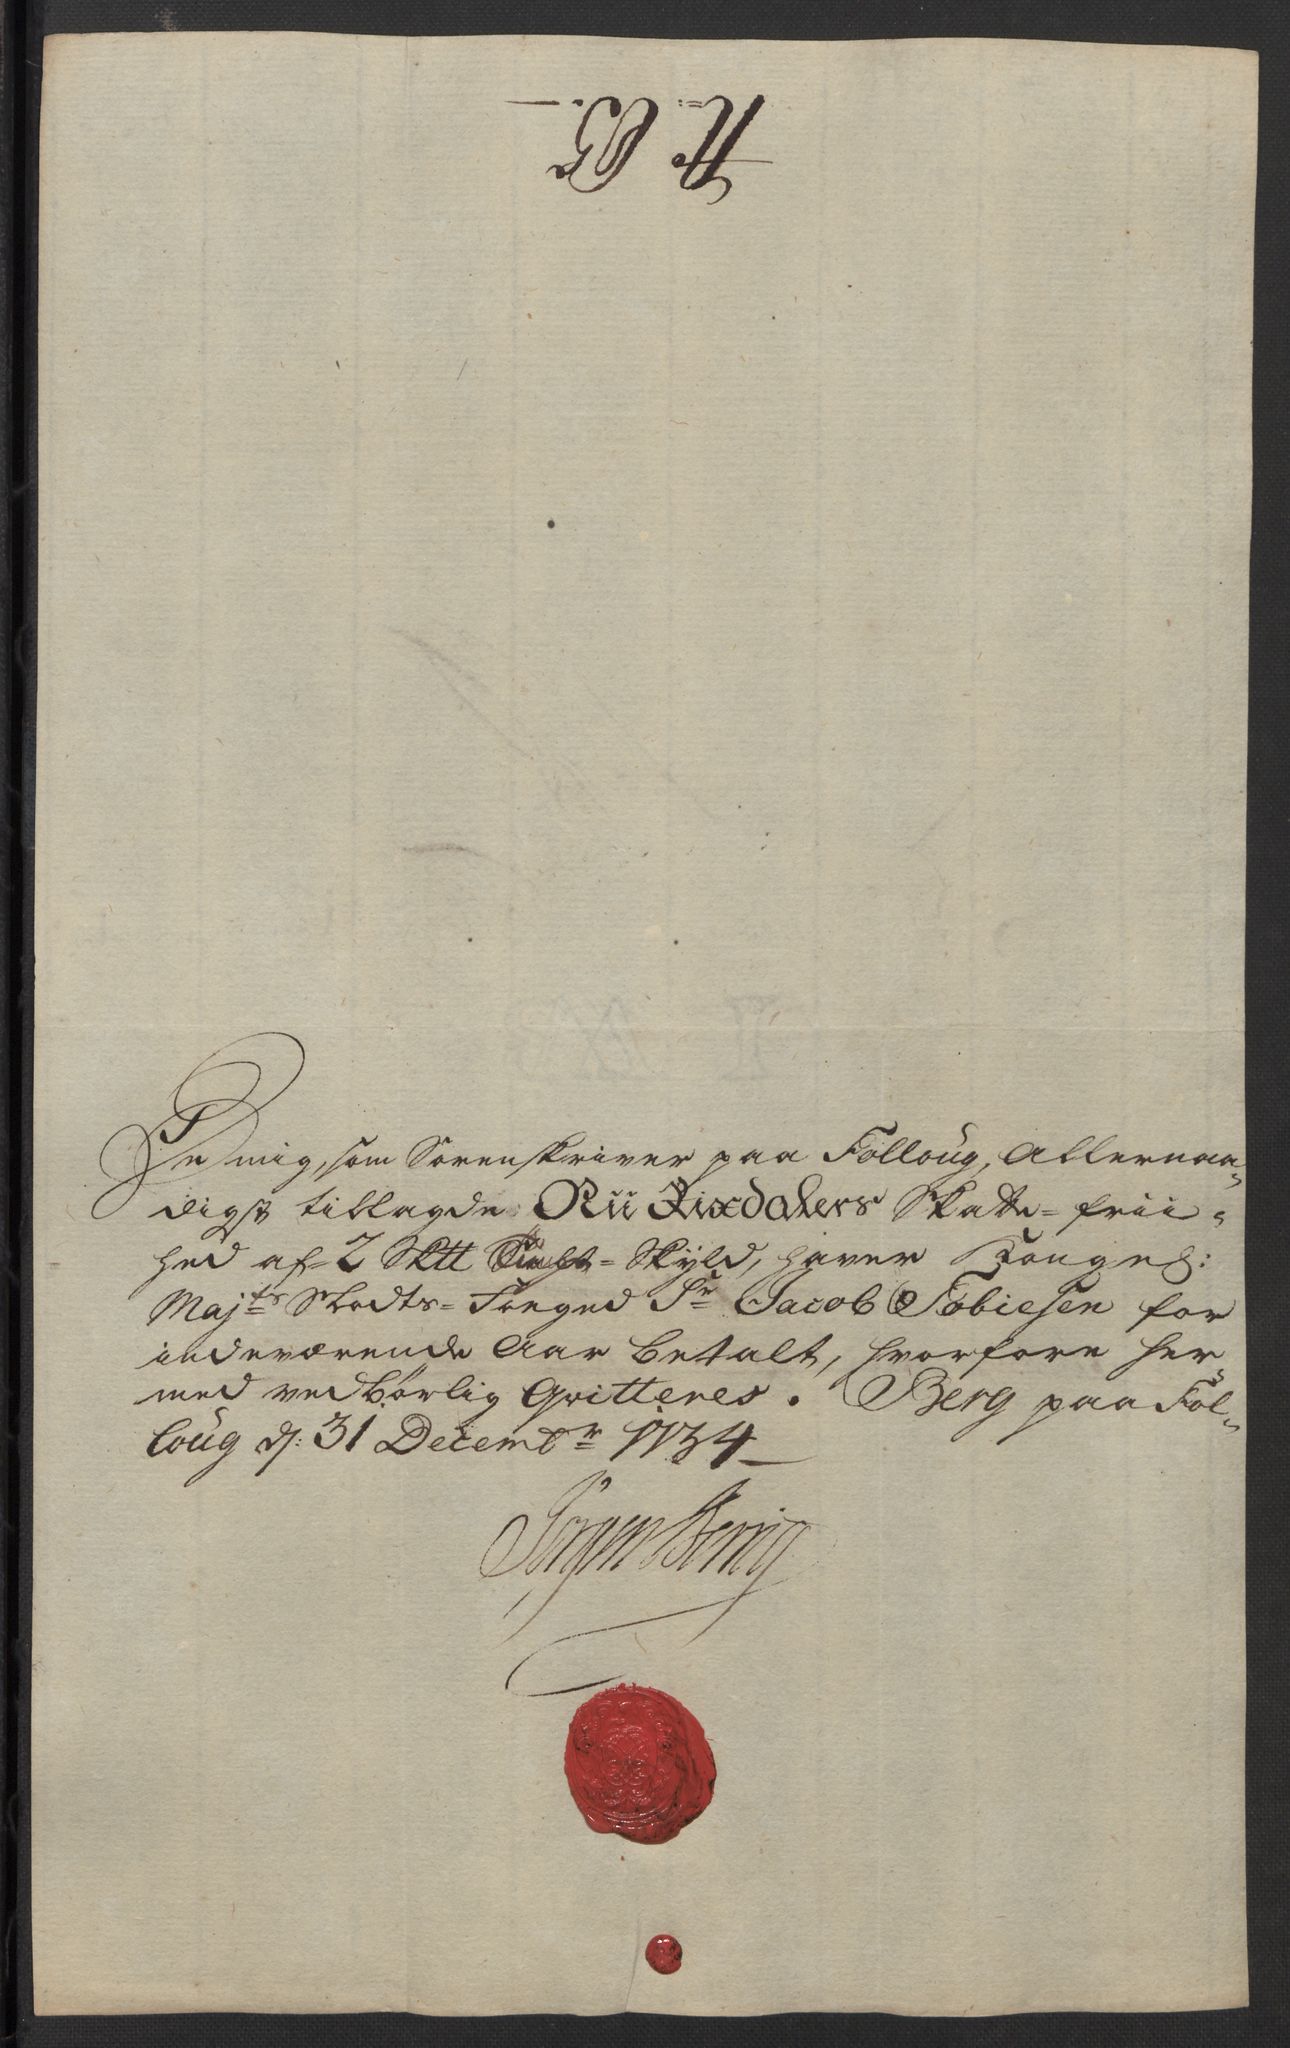 No 65.
De mig, som Sorenskriver paa Folloug, Allernaa-
digst tillagde Nii Rixdalers Skatte-frii-
hed af 2 Sktt Tunge-Skyld, haver Kongel:
Majts Stadts-Foeged Sr Jacob Tobiesen for
indeværende Aar betalt, hvorfore her-
med vedbørlig Qvitteres. Berg paa Fol-
loug d: 31 Decembr 1734
Jørgen